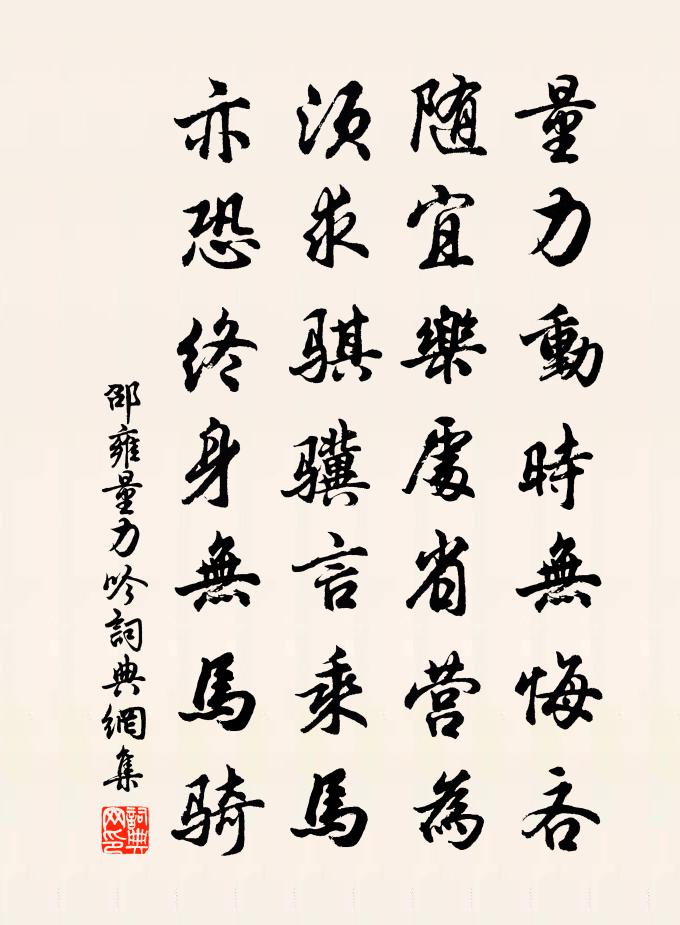 量力動時無悔吝
随宜樂處省营為
須求騏驥言乘馬
亦恐終身無馬骑
邵雍量力吟詞典網集
詞典网印